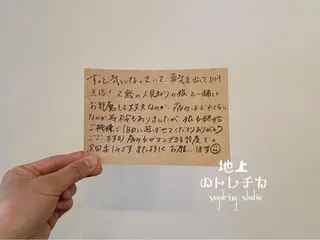 ずっと気になっていて、勇気を出してDM
送信! 2歳の人見知りの娘と一緒に
お邪魔して大丈夫なのか、痛みはどれくらい
なのか不安もありましたが、娘も終始
ご機嫌で(自由に遊ばせてくださりありがとう
ございます!)痛みもガマンできる程度で
次回楽しみです。またよろしくお願いします
地上
のトレチカ
sugaring studio